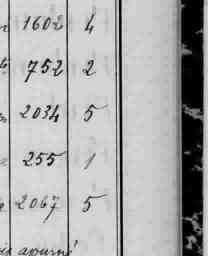 1602 4
752 2
2034 5
255 1
2067 5
apuré